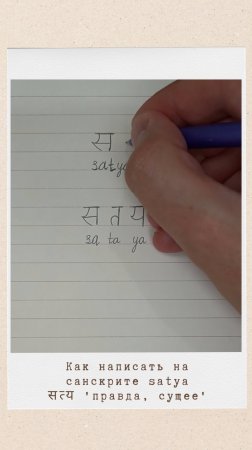 स
satya
स त य
sa ta ya
Как написать на
санскрите satya
सत्य 'правда, сущее'